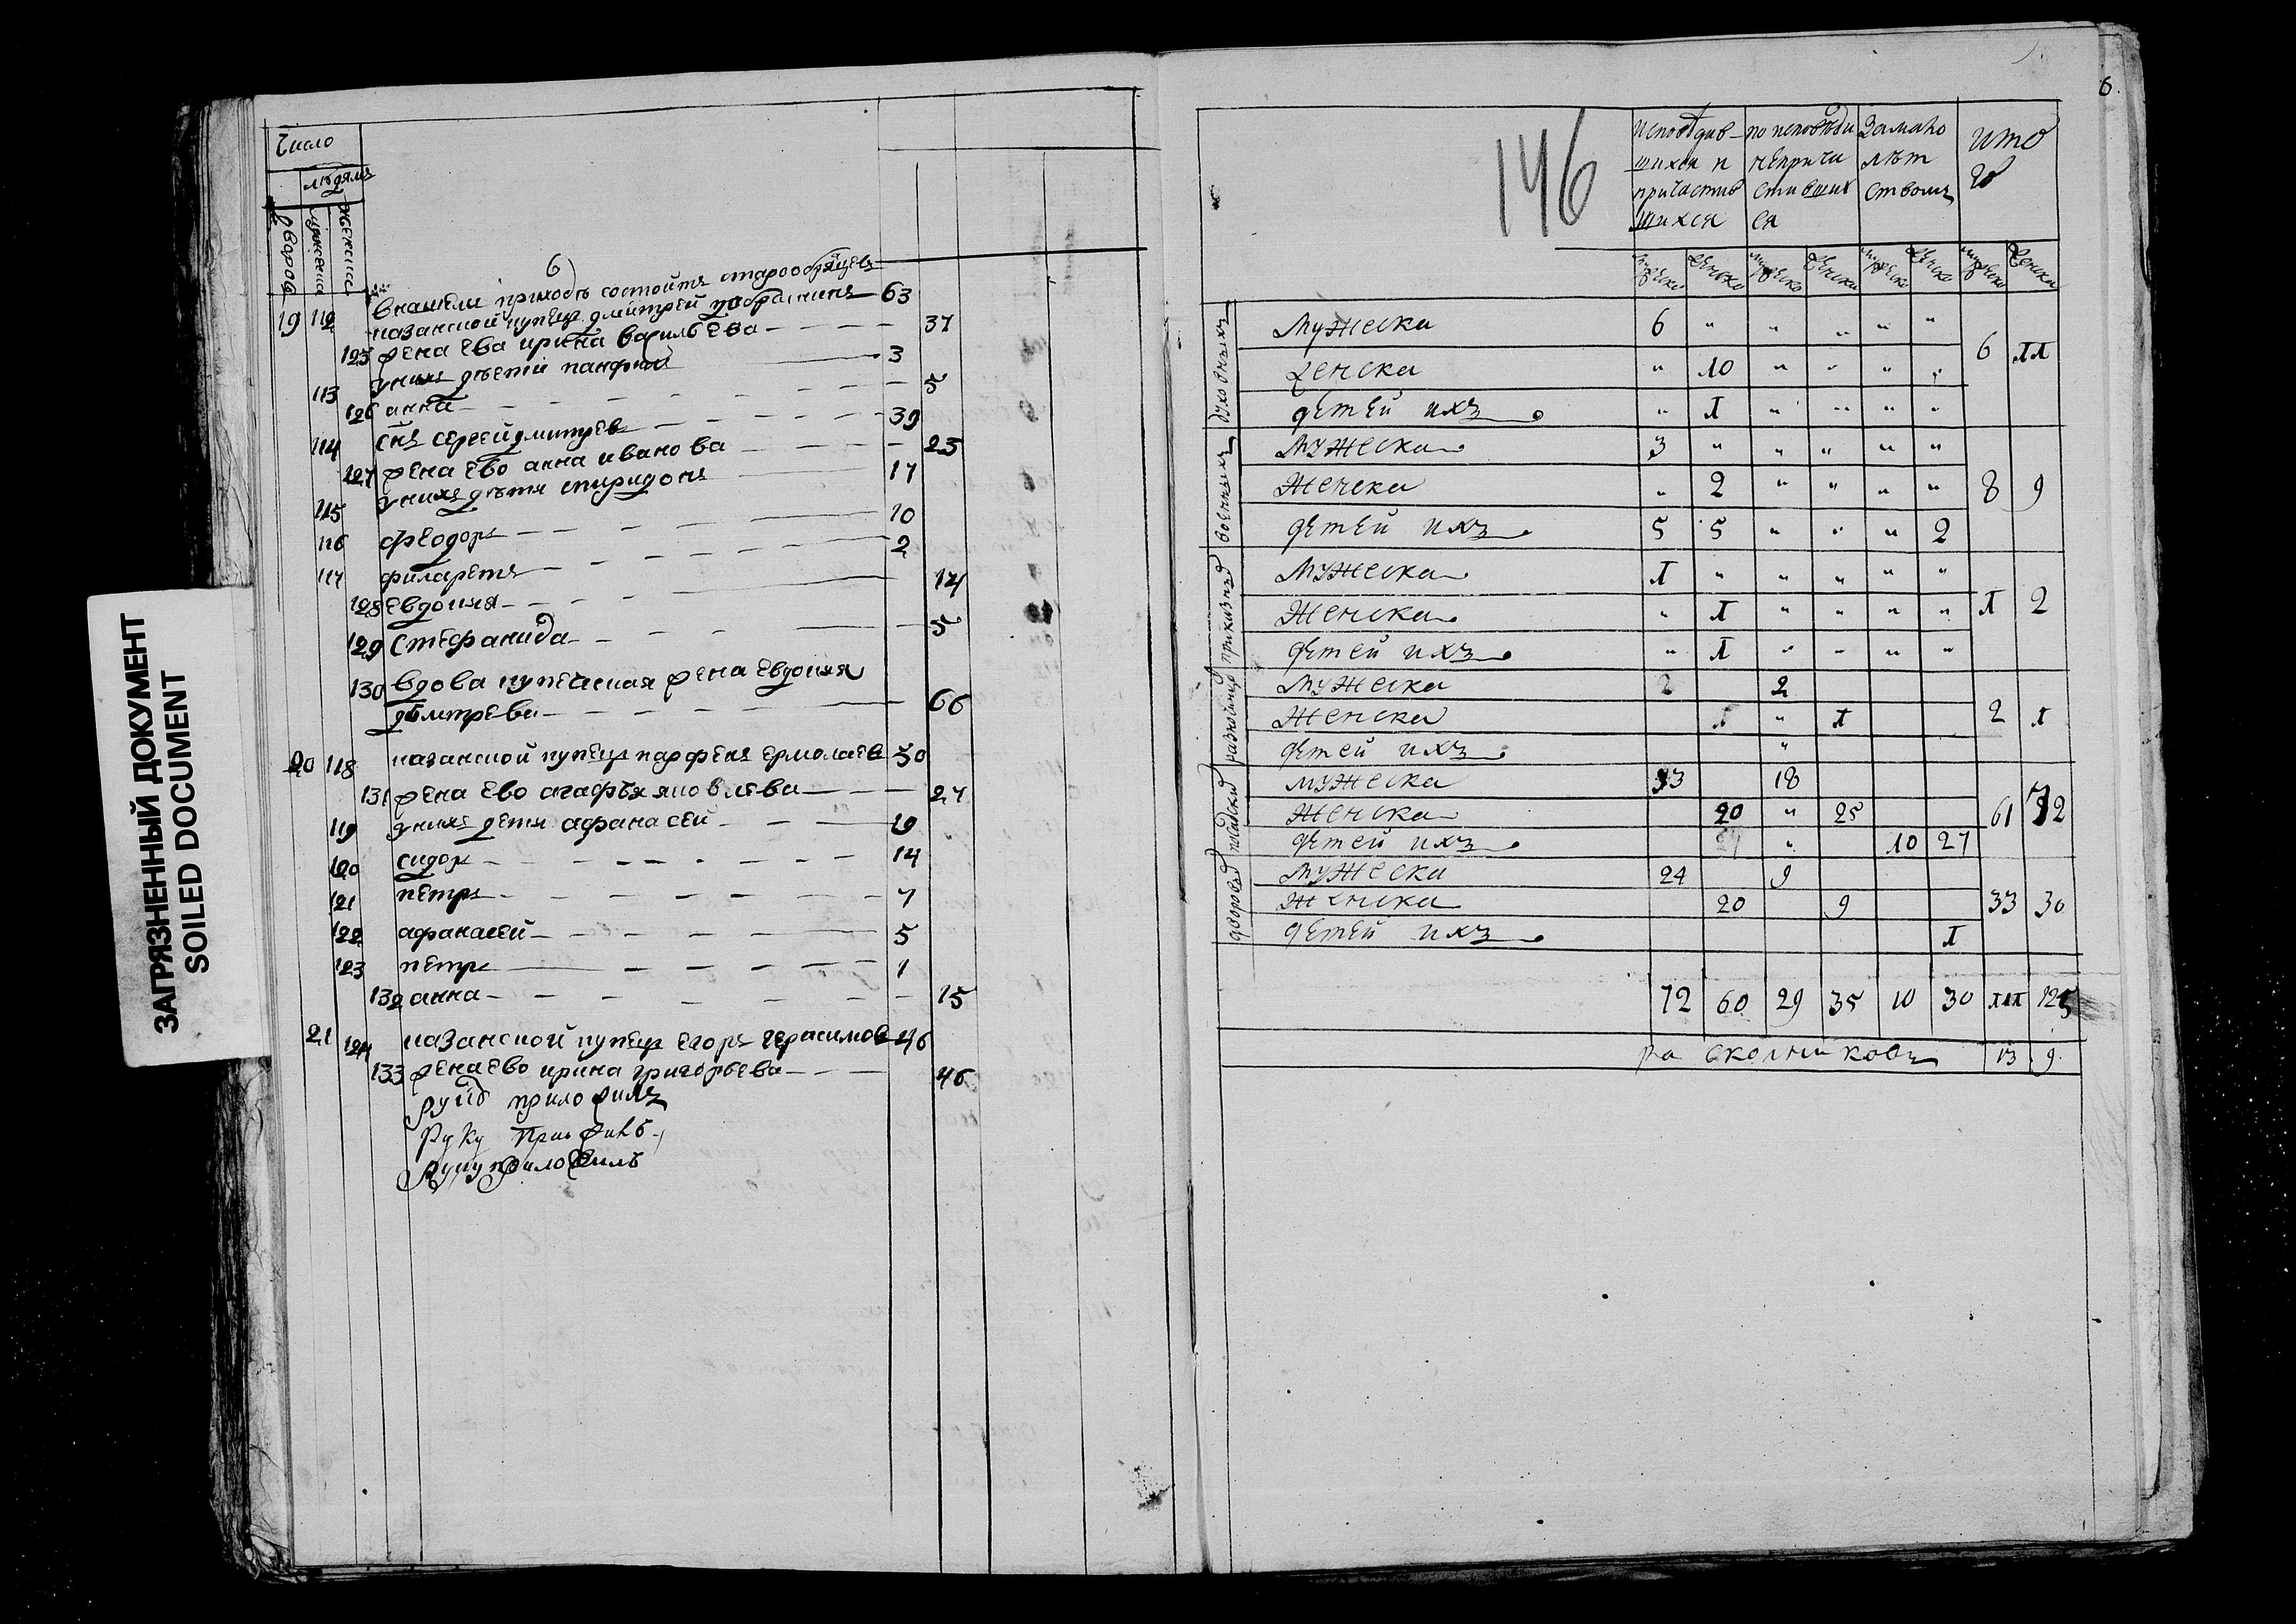 ЗАГРЯЗНЕННЫЙ ДОКУМЕНТ
SOILED DOCUMENT
Число
людямъ
дворовъ
мужеска
женска
6)
внашемъ приходѣ состоитъ старообрядцевъ
19 112 казанской купецъ дмитрей 63
125 жена ева ирина васильева 37
113 унихъ дѣтей панфилъ 3
126 анна 5
114 снъ сергей дмитрев 39
127 жена ево анна иванова 23
115 унихъ дѣти спиридонъ 17
116 феодоръ 10
117 филаретъ 2
128 евдокия 14
129 стефанида 5
130 вдова купеческая жена евдокия
дмитрева 66
20 118 казанской купецъ парфенъ ермолаев 50
131 жена ево агафья яковлева 27
119 унихъ дети афанасей 19
120 сидоръ 14
121 петръ 7
122 афанасей 5
123 петръ 1
132 анна 15
21 124 казанской купецъ егоръ герасимов 46
133 жена ево ирина григорьева 46
руку приложилъ
Руку приложилъ
Руку приложилъ
6
146
исповѣдав-
шихся и
причастив
шихся
по исповѣди
неприча
стивших
ся
Замало
лѣт
ствомъ
ито
го
мужеско женско мужеско женско мужеско женско мужеско женска
духовныхъ
Мужеска 6 " " " " "
Женска " 10 " " " " 6 11
детей ихъ " 1 " " " "
военныхъ
Мужеска 3 " " " " "
Женска " 2 " " " " 8 9
детей ихъ 5 5 " " " 2
приказнѣ
Мужеска 1 " " " " "
Женска " 1 " " " " 1 2
детей ихъ " 1 " " " "
разночинцѣ
Мужеска 2 2
Женска 1 " 1 2 1
детей ихъ "
посадскѣ
мужеска 33 18
Женска 20 " 25 61 72
детей ихъ " 10 27
дворовѣ
Мужеска 24 9
Женска 20 9 33 30
детей ихъ 1
72 60 29 35 10 30 111 125
расколниковъ 13 9